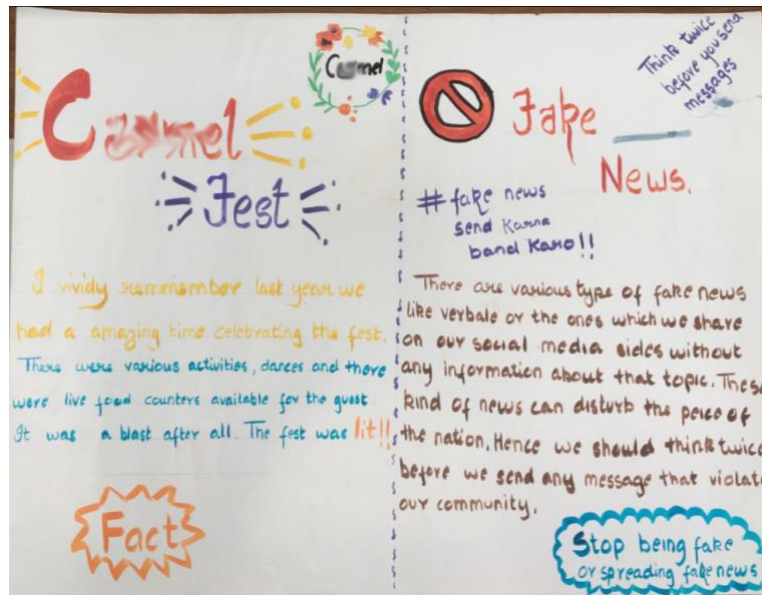 Carmel
Carmel
Fest
I vividy remmember last year we
had a amazing time celebrating the fest.
There were various activities, dances and there
were live food counters available for the guest.
It was a blast after all. The fest was lit!!
Fact
Think twice
before you send
messages
Fake
News.
#fake news
send Karna
band Karo!!
There are various type of fake news
like verbale or the ones which we share
on our social media sides without
any information about that topic. These
kind of news can disturb the peice of
the nation. Hence we should think twice
before we send any message that violate
our community.
Stop being fake
or spreading fake news